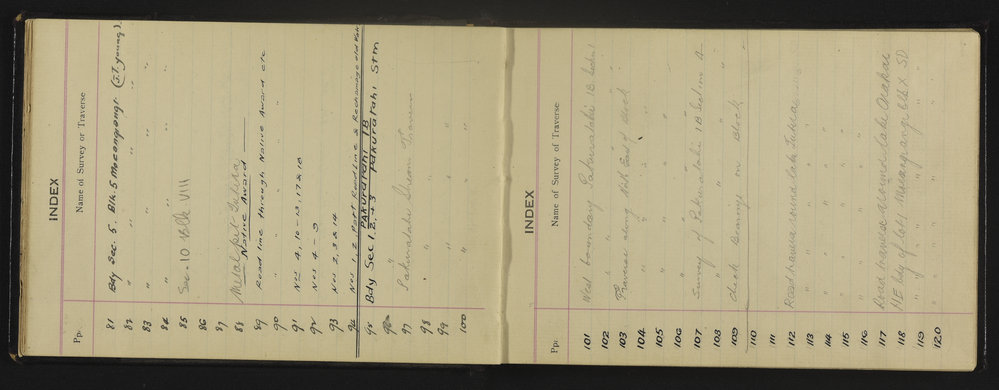 INDEX
Pp.
Name of Survey or Traverse
81 Bdy Sec. 5. Blk. 5 Maeangiangi (J.T. Young)
82 " " "
83 " " "
84 " " "
85 Sec. 10 Blk VIII
86
87 Metal pit Tutira
88 Native Award
89 Road line through Native Award etc
90 " " "
91 Nos 9, 10 - 13, 17 & 18
92 Nos 4 - 9
93 Nos 2, 3 & 14
94 Nos 1, 2 Part Road Line &
PAKURATAHI 1B
95 Bdy Sec 1, 2 + 3 Pakuratahi Stm
96
97 Pakuratahi Stream Traverse
98 " " "
99
100 " "
INDEX
Pp.
Name of Survey of Traverse
101 West boundary Pakuratahi 1B Section 1
102 " " "
103 Traverse along North End of Block
104 " " "
105 " " "
106 " "
107 Survey of Pakuratahi 1B Section
108 " " "
109 Check Bearings on Block
110
111
112 Road traverse round Lake Tutira
113 " " "
114 " " "
115 " " "
116 " " "
117 Road traverse around Lake
118 NE bdy of lot 1 SD
119 " " "
120 " " "